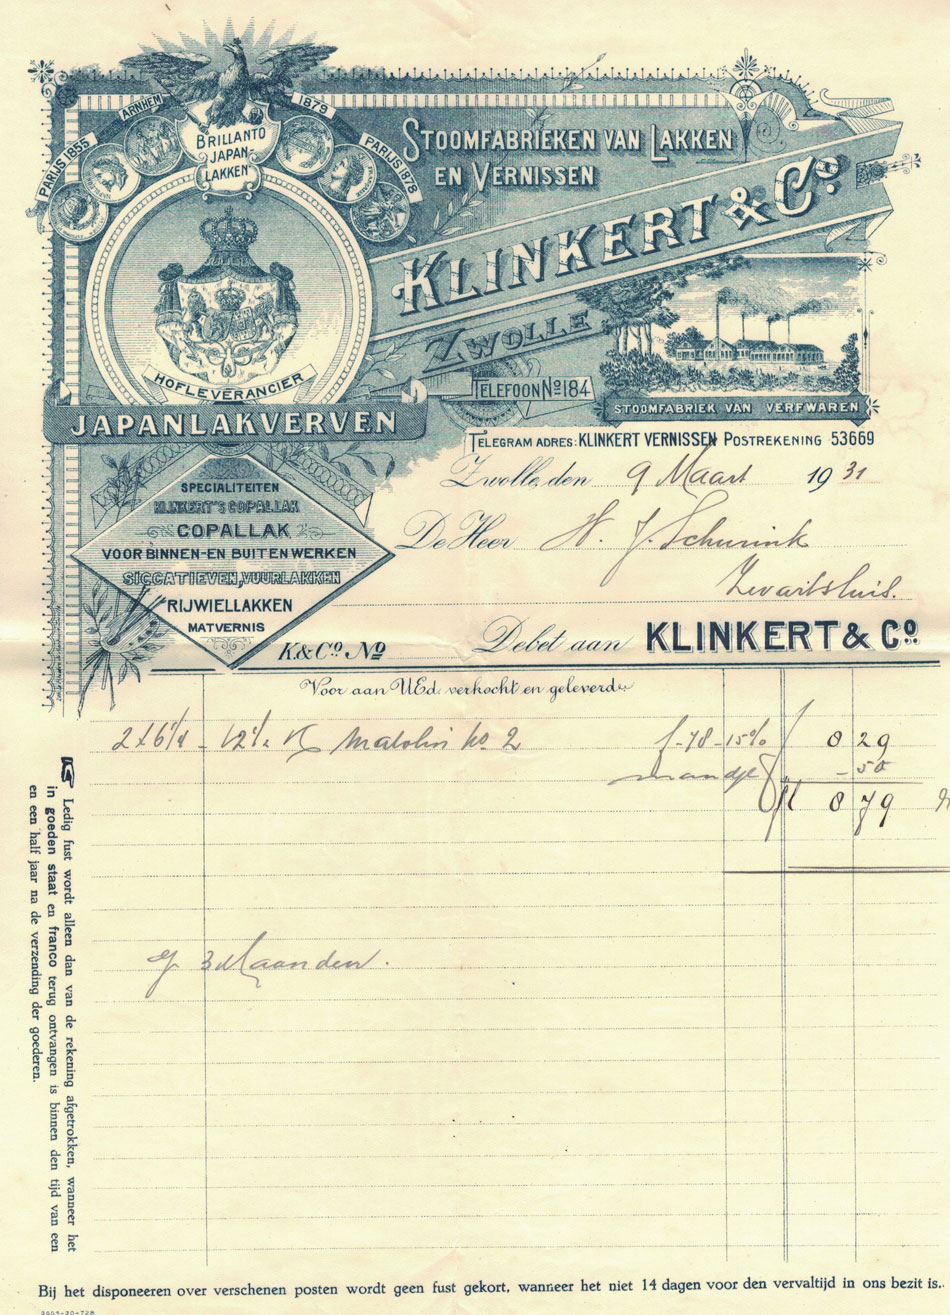 PARIJS 1855
ARNHEM
1879
PARIJS 1878
BRILLANTO
JAPAN-
LAKKEN
STOOMFABRIEKEN VAN LAKKEN
EN VERNISSEN
KLINKERT & Co.
ZWOLLE
HOFLEVERANCIER
TELEFOON No 184
STOOMFABRIEK VAN VERFWAREN
JAPANLAKVERVEN
TELEGRAM ADRES: KLINKERT VERNISSEN POSTREKENING 53669
Zwolle, den 9 Maart 1931
SPECIALITEITEN
KLINKERT'S COPALLAK
COPALLAK
VOOR BINNEN- EN BUITEN WERKEN
SICCATIEVEN, VUURLAKKEN
RIJWIELLAKKEN
MATVERNIS
De Heer H. J. Schurink
Zwartsluis.
K. & Co. No
Debet aan KLINKERT & Co.
Voor aan UEd. verkocht en geleverd:
2 x 6¼ - 12½ K Matolin No 2 f -78 - 15% 8 29
mandje - 50
fl 8 79
3 Maanden.
Ledig fust wordt alleen dan van de rekening afgetrokken, wanneer het
in goeden staat en franco terug ontvangen is binnen den tijd van een
en een half jaar na de verzending der goederen.
Bij het disponeeren over verschenen posten wordt geen fust gekort, wanneer het niet 14 dagen voor den vervaltijd in ons bezit is.